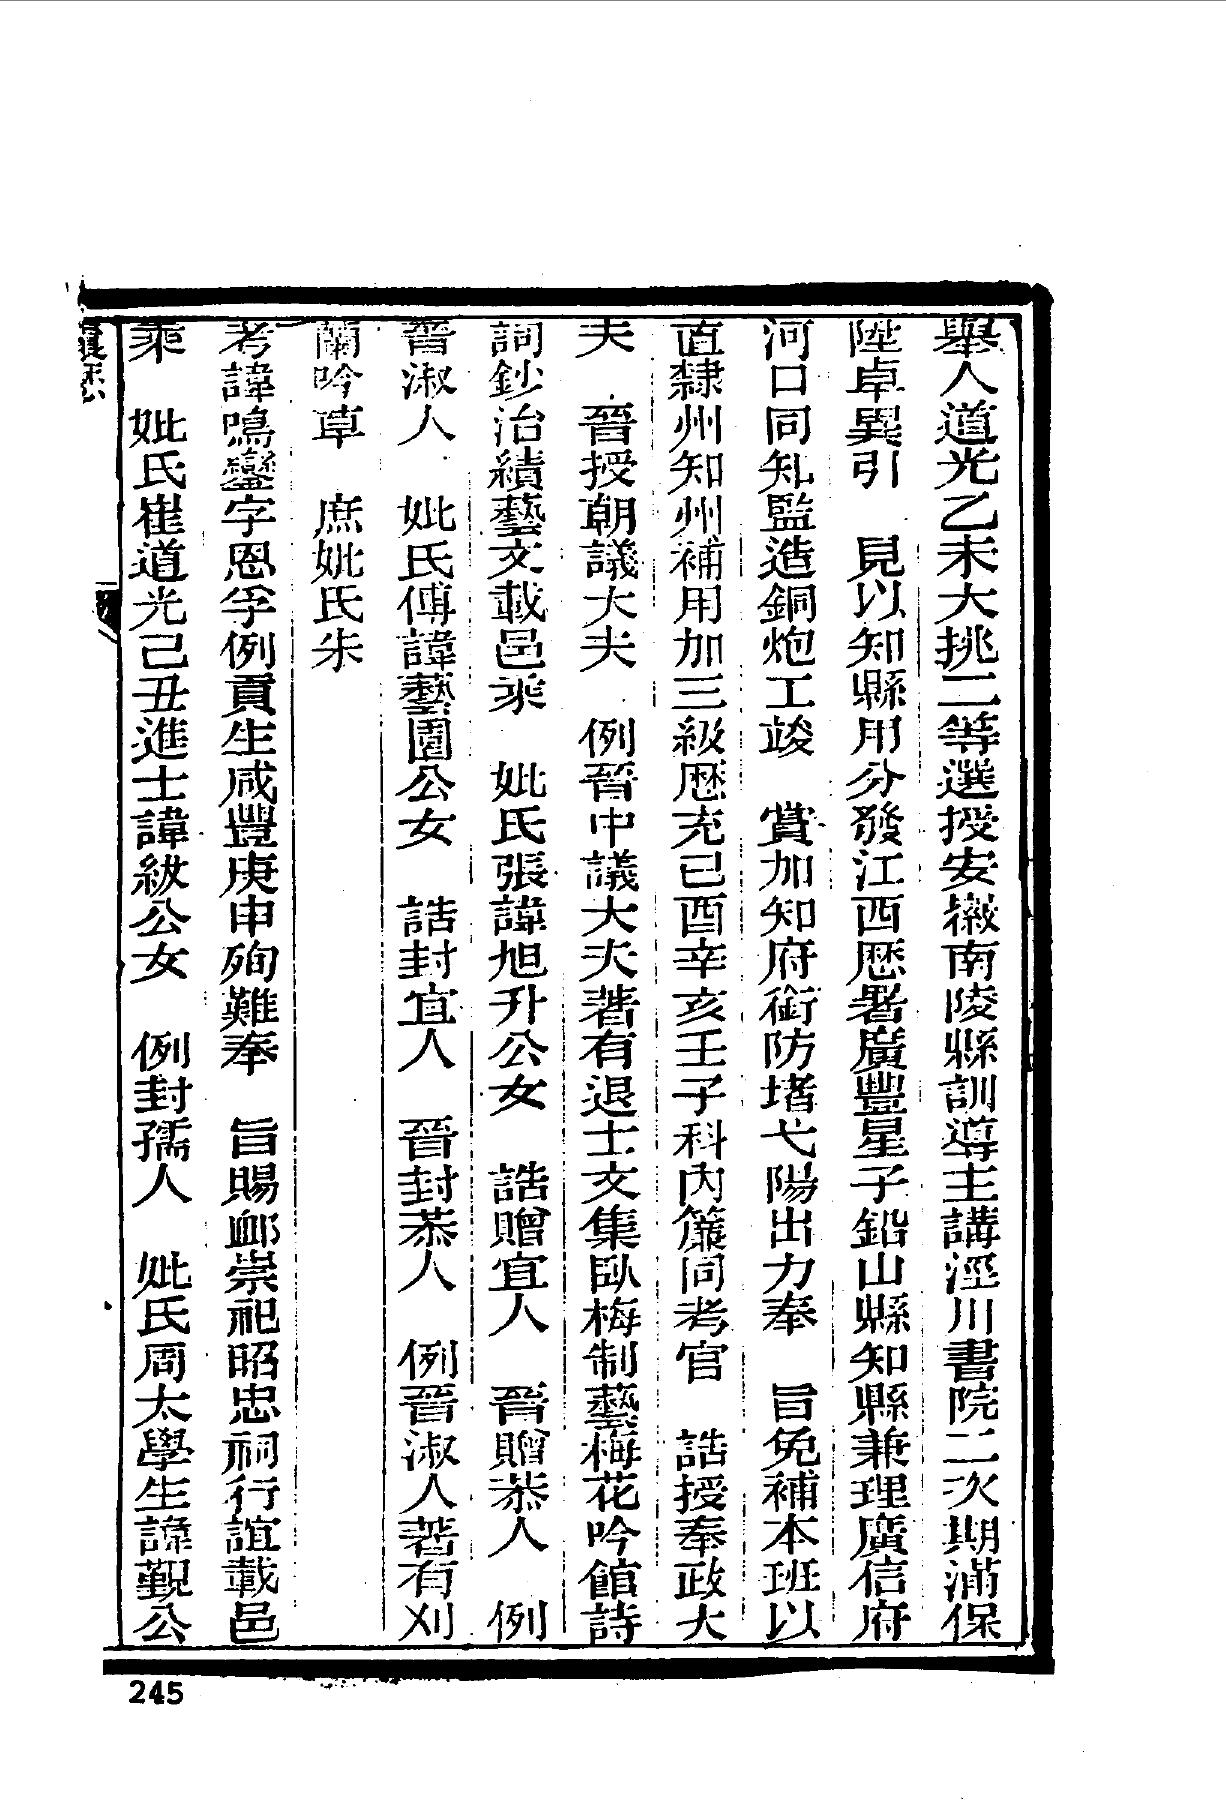 舉人道光乙未大挑二等選授安徽南陵縣訓導主講涇川書院二次期滿保
陞卓異引　見以知縣用分發江西歷署廣豐星子鉛山縣知縣兼理廣信府
河口同知監造銅炮工竣　賞加知府銜防堵弋陽出力奉　旨免補本班以
直隸州知州補用加三級歷充己酉辛亥壬子科內簾同考官　誥授奉政大
夫　晉授朝議大夫　例晉中議大夫著有退士文集臥梅制藝梅花吟館詩
詞鈔治績藝文載邑乘　妣氏張諱旭升公女　誥贈宜人　晉贈恭人　例
晉淑人　妣氏傅諱藝園公女　誥封宜人　晉封恭人　例晉淑人著有刈
蘭吟草　庶妣氏朱
考諱鳴鑾字恩孚例貢生咸豐庚申殉難奉　旨賜卹崇祀昭忠祠行誼載邑
乘　妣氏崔道光己丑進士諱紱公女　例封孺人　妣氏周太學生諱覲公
履歷
245